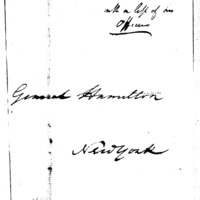 with a list of his
Officers
General Hamilton
New York